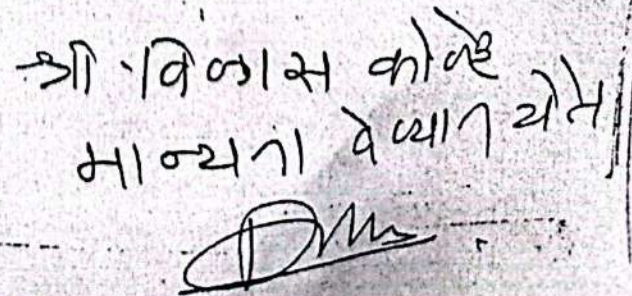 श्री विकास कोल्हे
मान्यता देण्यात येते